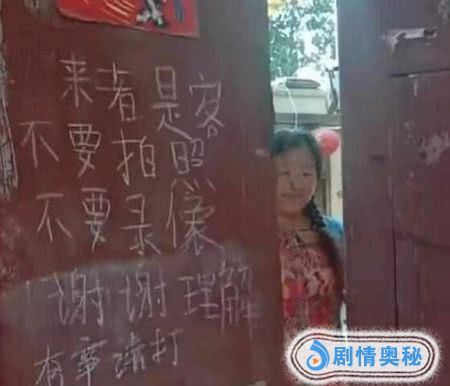 来者是客
不要拍照
不要录像
谢谢理解
有事请打
剧情奥秘